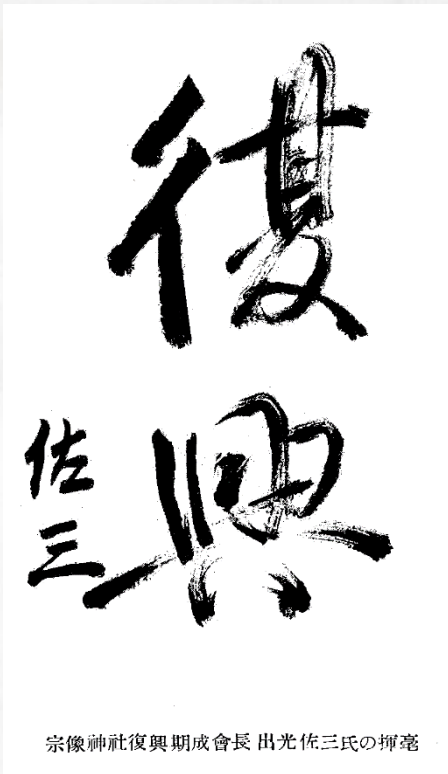 復興
佐三
宗像神社復興期成會長出光佐三氏の揮毫